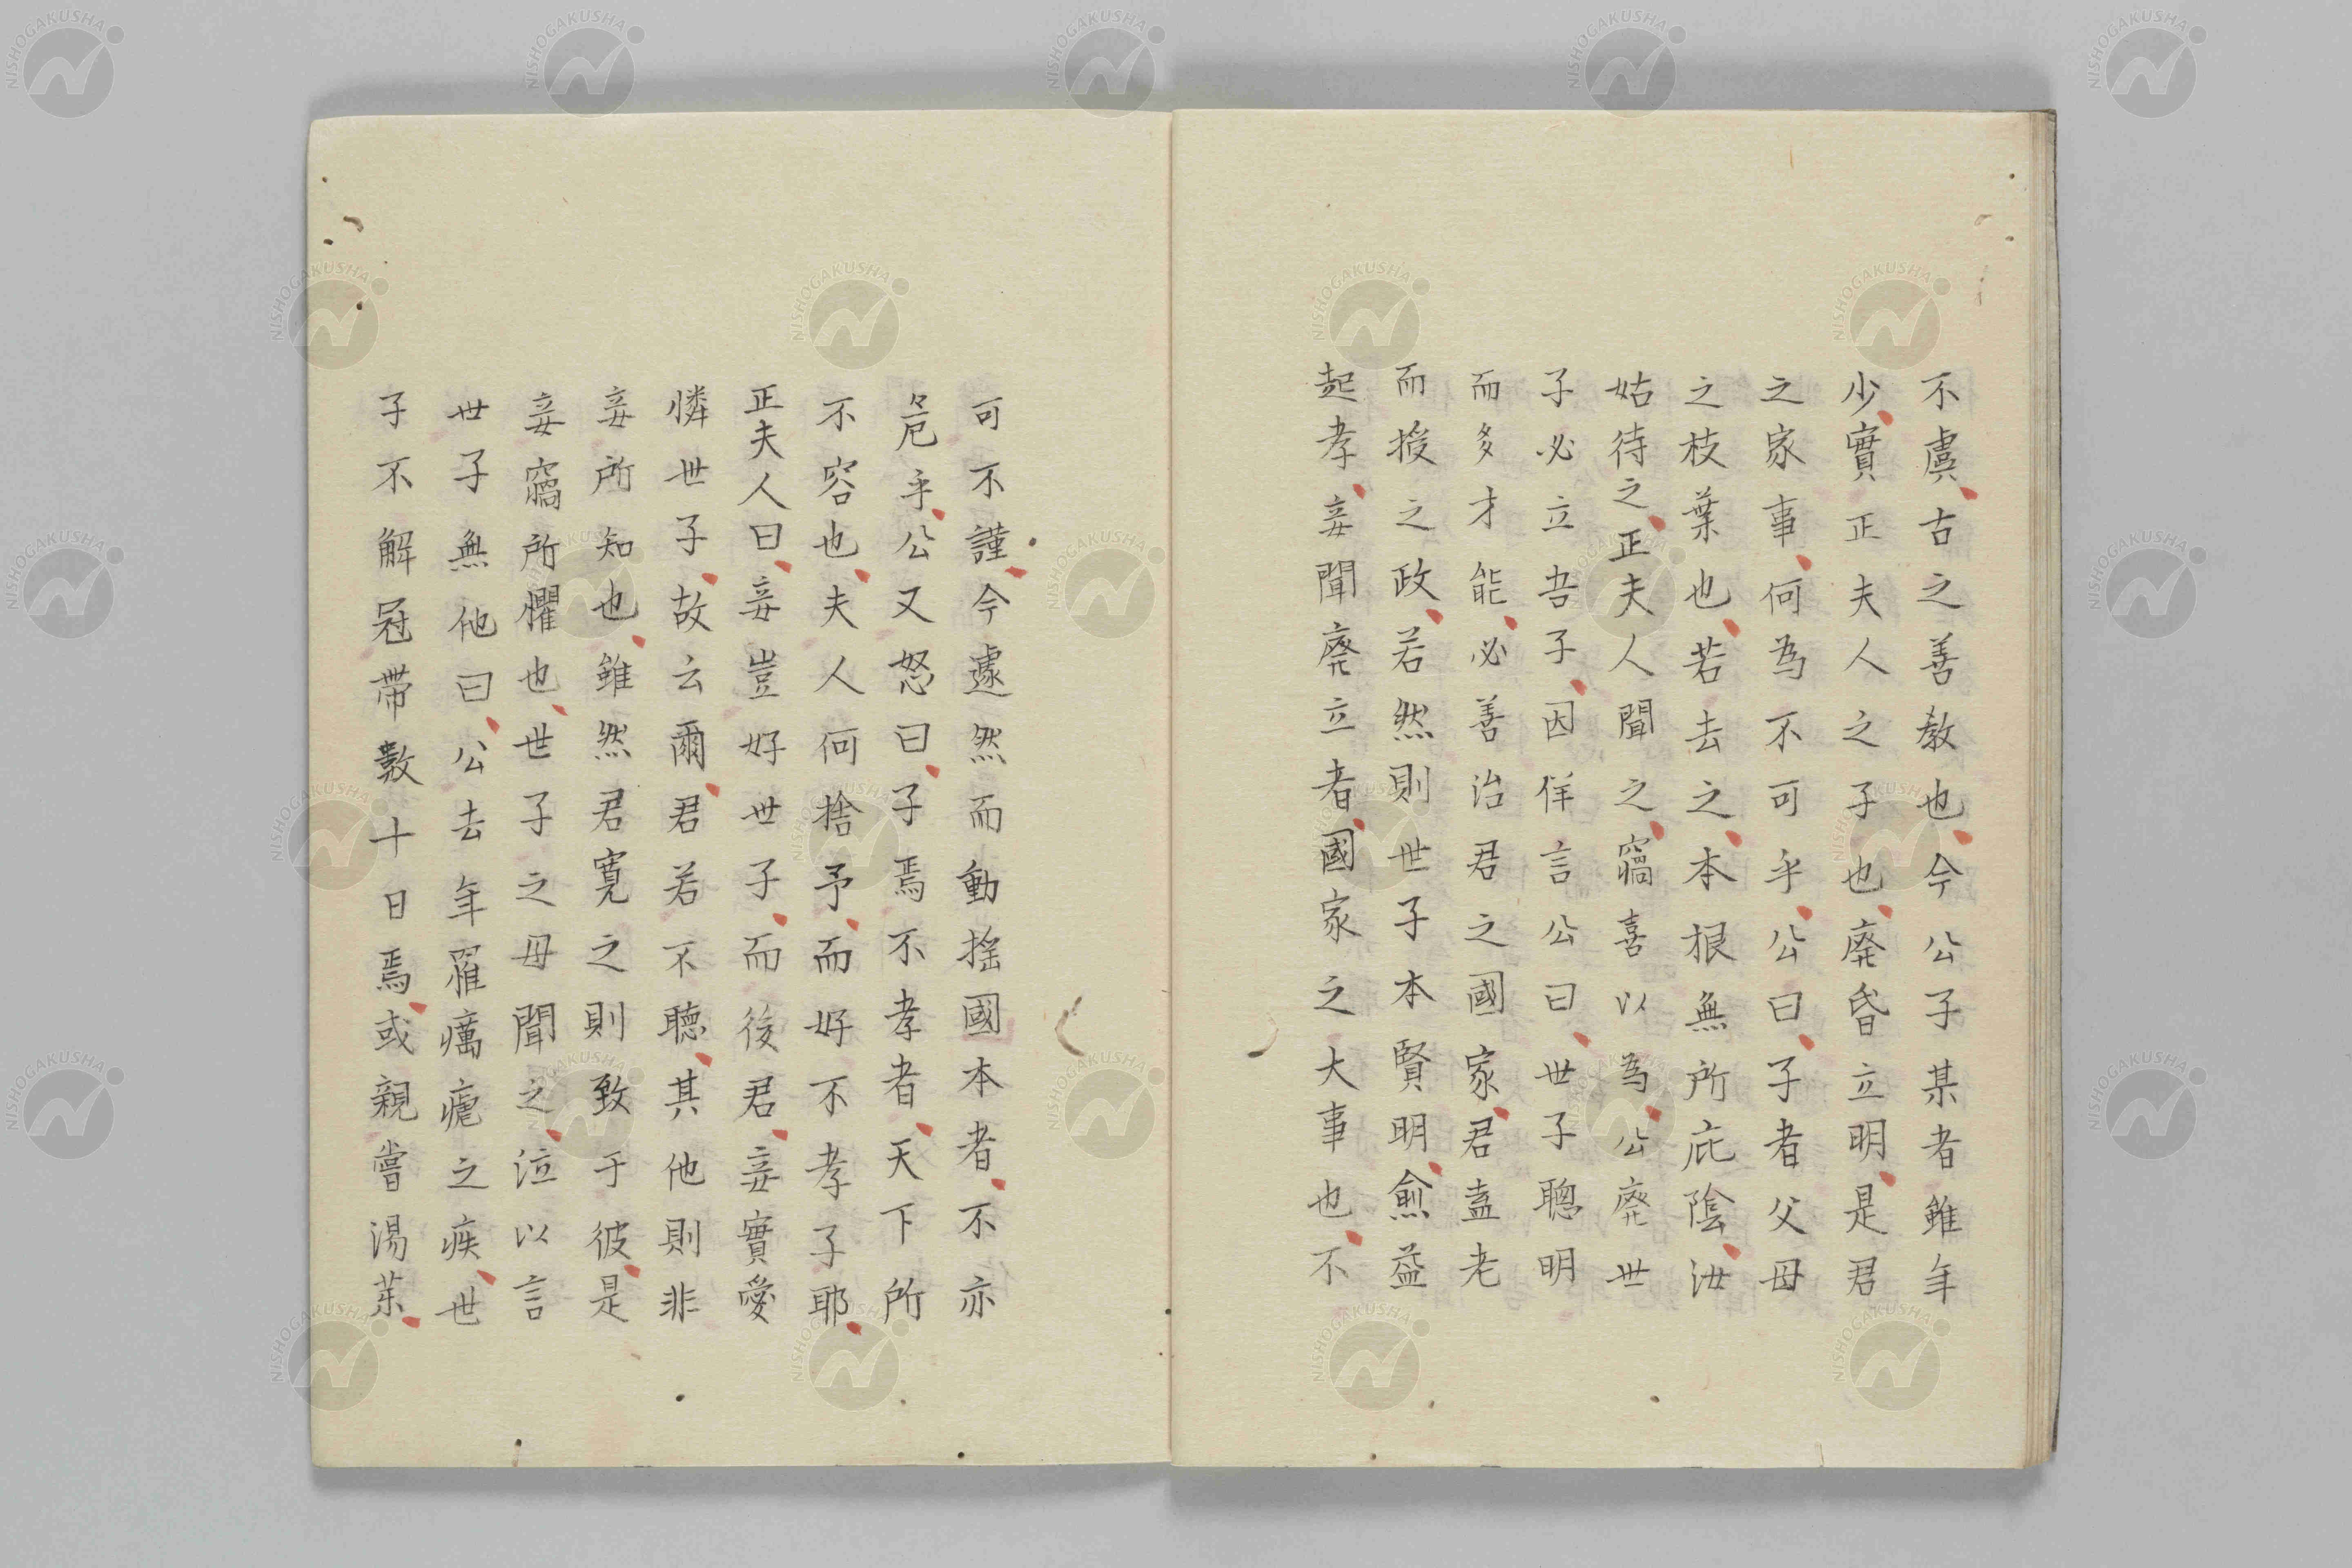 不虞古之善教也今公子某者雖年
少實正夫人之子也廃昏立明是君
之家事何為不可乎公曰子者父母
之枝葉也若去之本根無所庇陰汝
姑待之正夫人聞之竊喜以為公廃世
子必立吾子因佯言公曰世子聰明
而多才能必善治君之國家君盍老
而授之政若然則世子本賢明愈益
起孝妾聞廃立者國家之大事也不
可不謹今遽然而動揺國本者不亦
危乎公又怒曰子焉不孝者天下所
不容也夫人何捨予而好不孝子耶
正夫人曰妾豈好世子而後君妾實愛
憐世子故云爾君若不聽其他則非
妾所知也雖然君寛之則致于彼是
妾竊所懼也世子之母聞之泣以言
世子無他曰公去年罹癘瘧之疾世
子不解冠帶數十日焉或親嘗湯茱
NISHOGAKUSHA